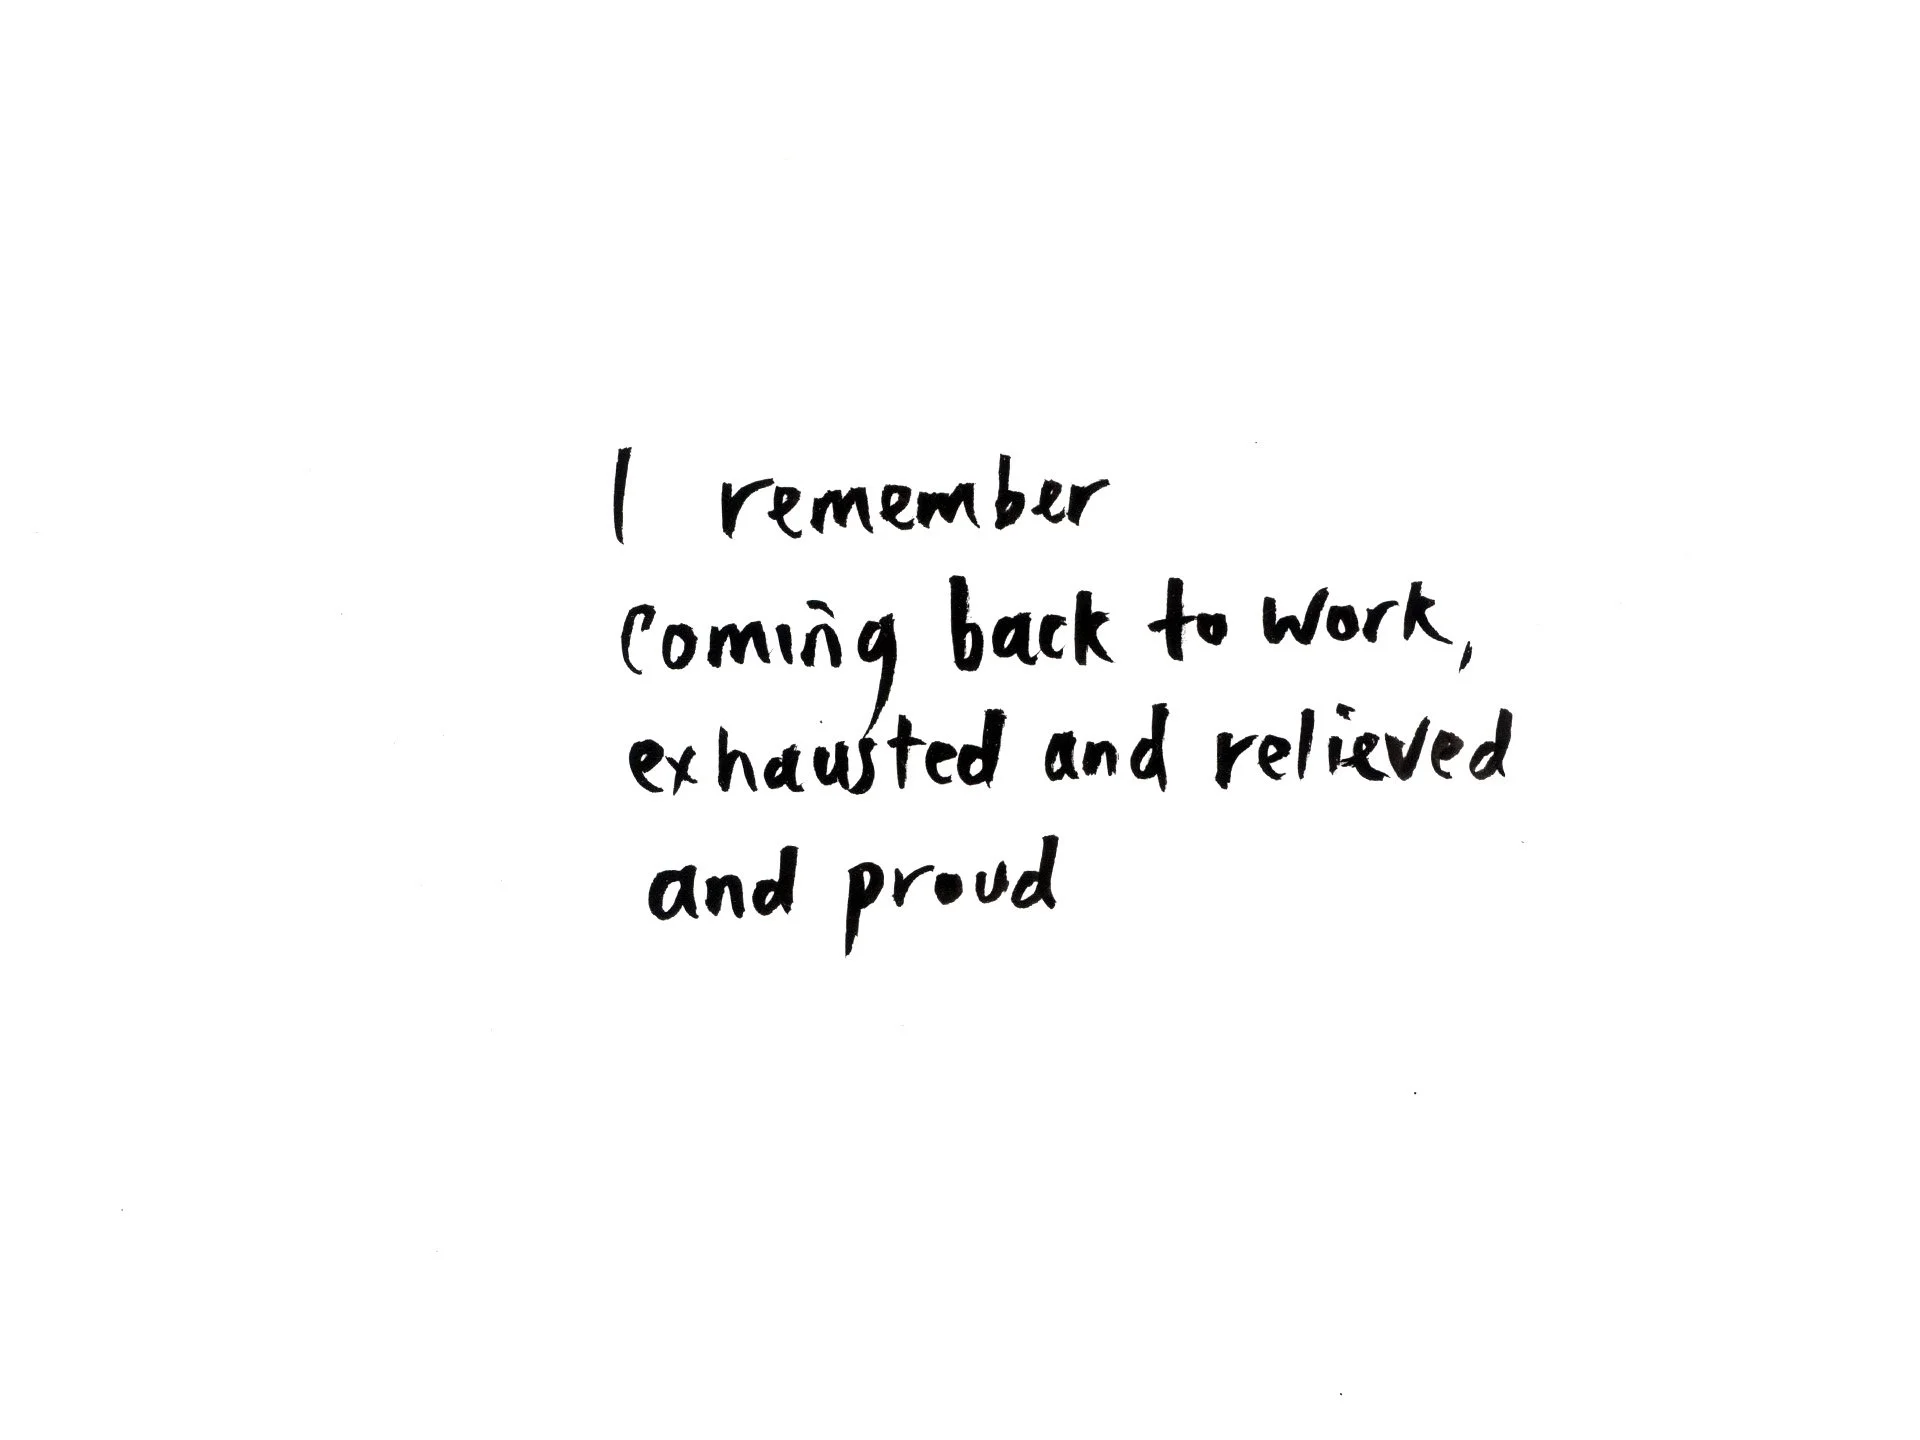 I remember
coming back to work,
exhausted and relieved
and proud